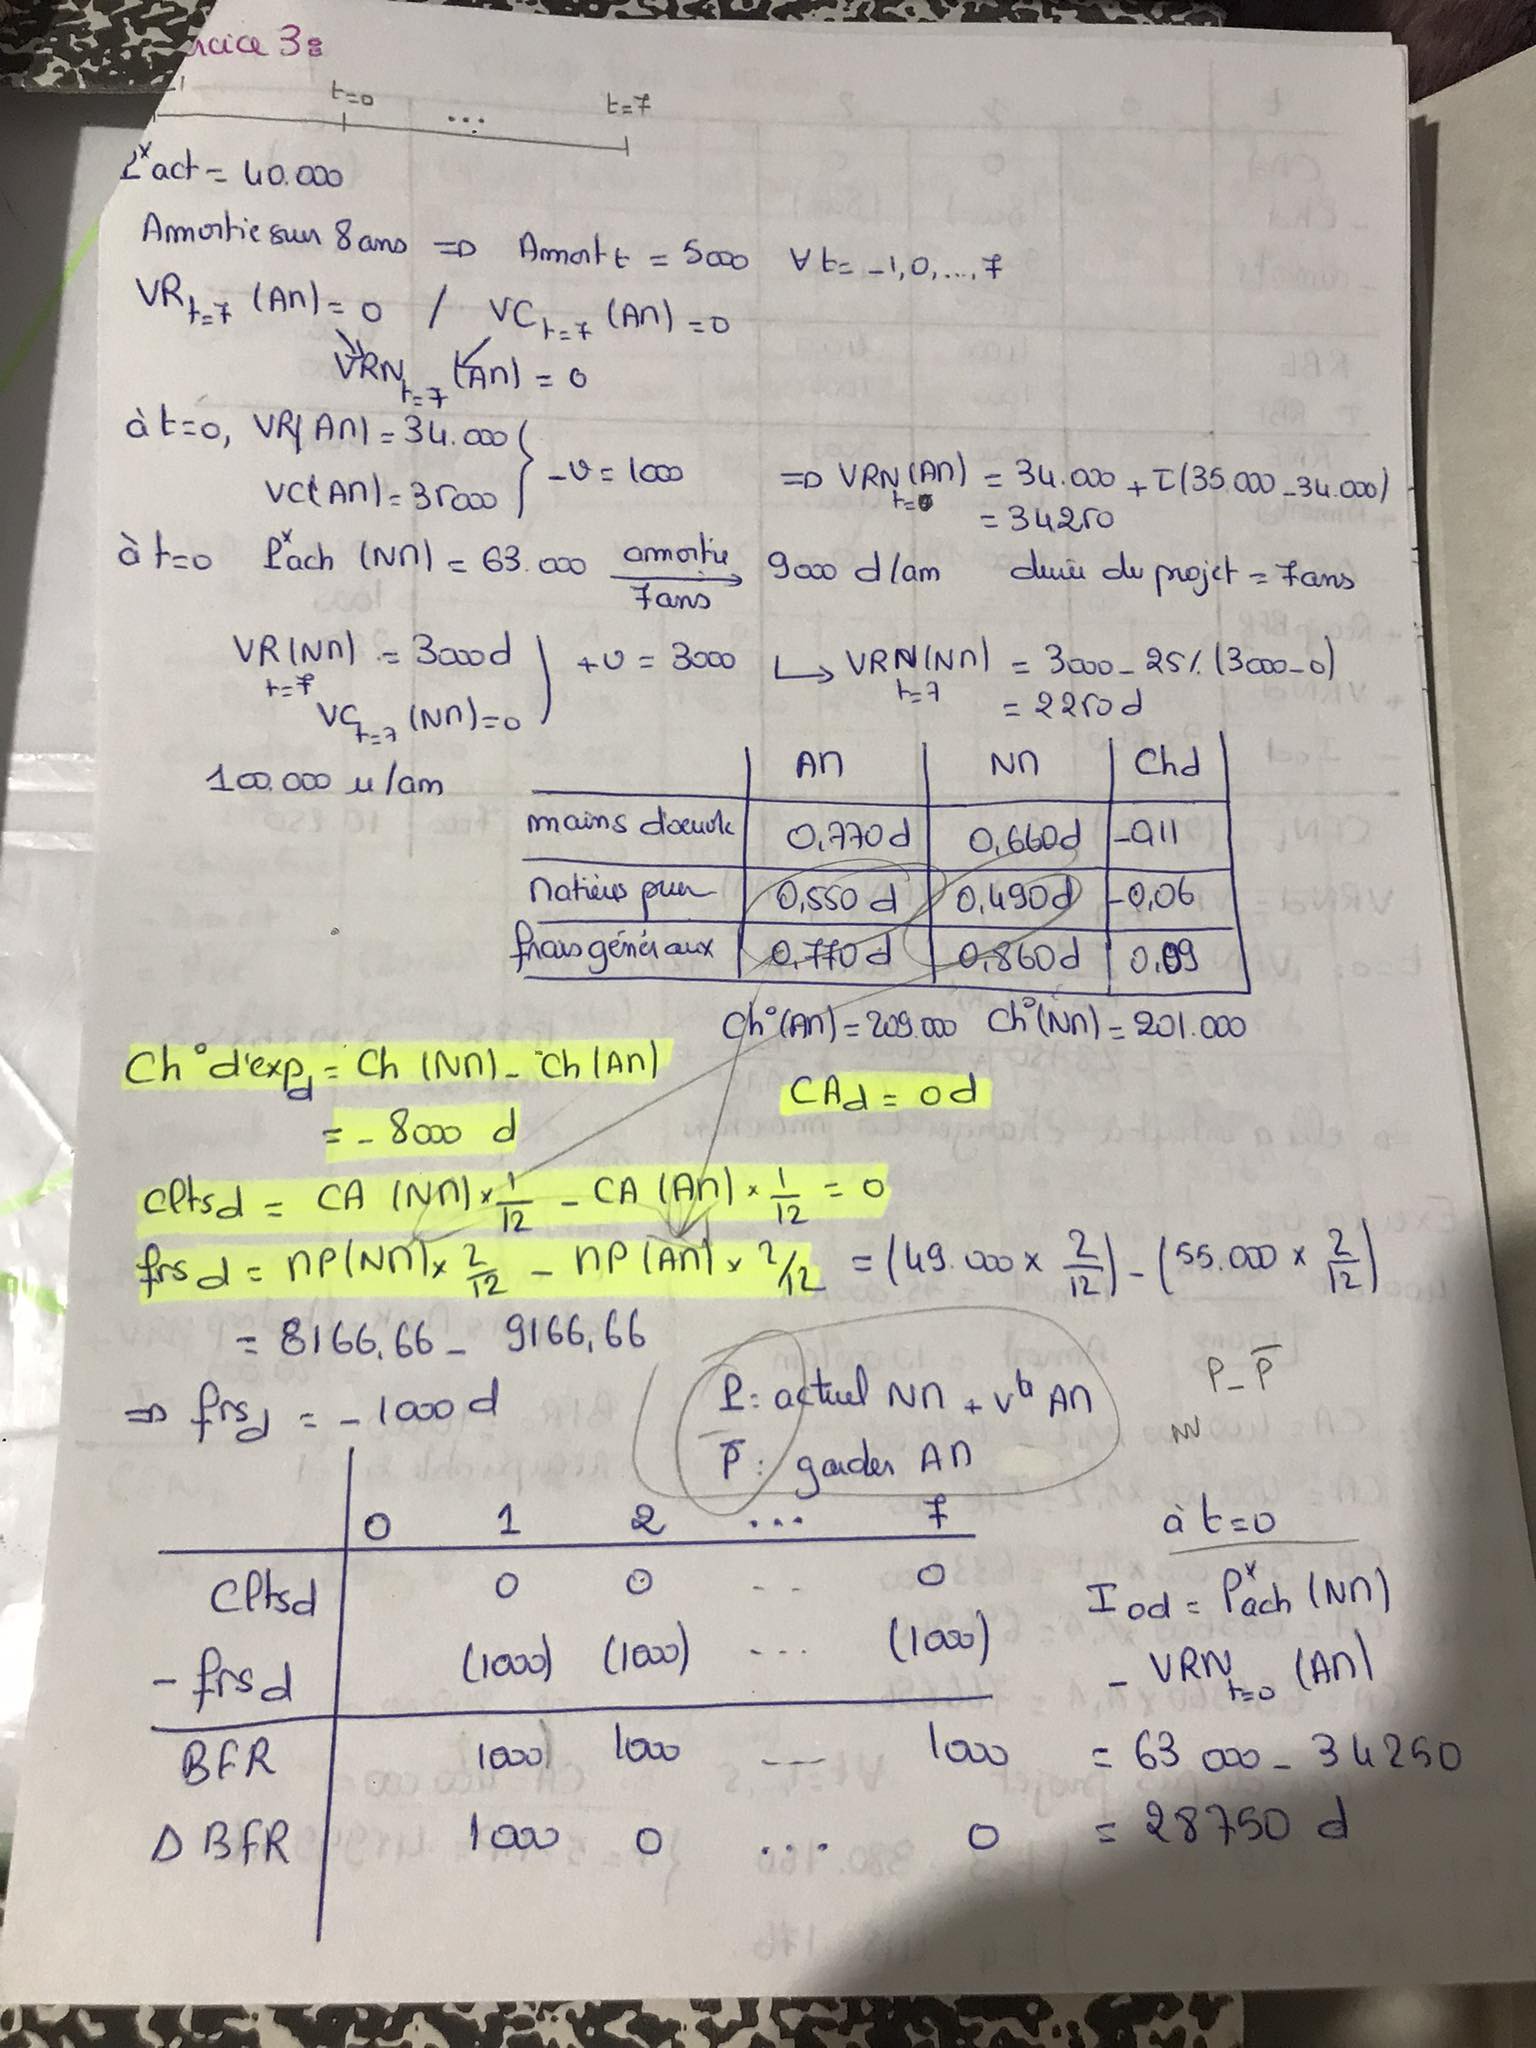 rcice 3:
t=0 ... t=7
Pˣact = 40.000
Amortie sur 8 ans => Amort t = 5000 ∀ t = -1, 0, ..., 7
VR t=7 (AΠ) = 0 / VC t=7 (AΠ) = 0
VRN t=7 (AΠ) = 0
à t=0, VR(AΠ) = 34.000
VC(AΠ) = 35000 } -v = 1000 => VRN t=0 (AΠ) = 34.000 + τ(35.000 - 34.000)
= 34250
à t=0 Pˣach (NΠ) = 63.000 amortie 7ans → 9000 d/am durée du projet = 7ans
VR(NΠ) t=7 = 3000d } +v = 3000 ↳ VRN t=7 (NΠ) = 3000 - 25% (3000 - 0)
VC t=7 (NΠ) = 0 = 2250 d
100.000 u/am
AΠ NΠ Chd
mains d'oeuvre 0,770d 0,660d -0,11
Π atières prem 0,550 d 0,490d -0,06
frais généraux 0,770d 0,860d 0,09
Ch°(AΠ) = 209.000 Ch°(NΠ) = 201.000
Ch° d'exp d = Ch (NΠ) - Ch (AΠ)
= - 8000 d CAd = 0d
Cltsd = CA (NΠ) × 1/12 - CA (AΠ) × 1/12 = 0
frs d = ΠP(NΠ) × 2/12 - ΠP (AΠ) × 2/12 = (49.000 × 2/12) - (55.000 × 2/12)
= 8166,66 - 9166,66
=> frs d = - 1000 d
P : actuel NΠ + vᵗᵉ AΠ
P̄ : garder AΠ
P - P̄
0 1 2 ... 7
Cltsd 0 0 .. 0
- frs d (1000) (1000) ... (1000)
BFR 1000 1000 ... 1000
Δ BFR 1000 0 ... 0
à t=0
I od = Pˣach (NΠ)
- VRN t=0 (AΠ)
= 63 000 - 34250
= 28750 d